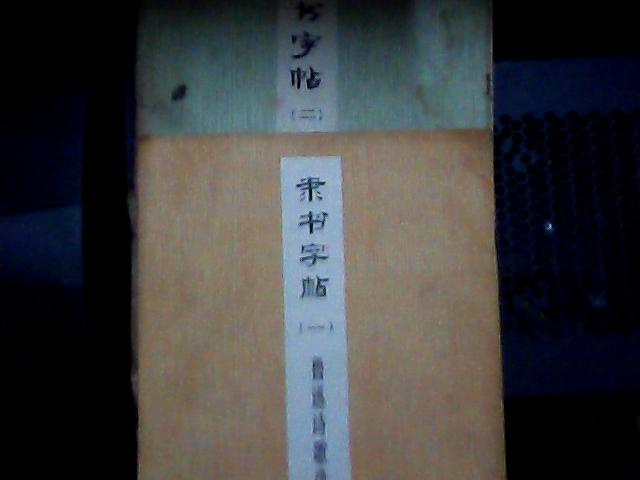 书字帖
（二）
隶书字帖
（一）
鲁迅诗歌